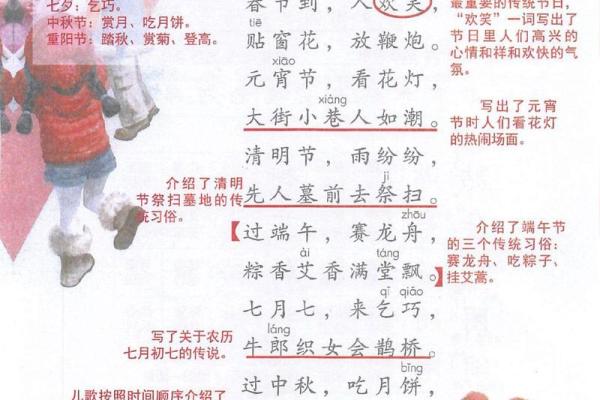 七夕：乞巧。
中秋节：赏月、吃月饼。
重阳节：踏秋、赏菊、登高。
春节到，人欢笑，
tiē
贴窗花，放鞭炮。
xiāo
元宵节，看花灯，
xiàng
大街小巷人如潮。
清明节，雨纷纷，
jì
先人墓前去祭扫。
zhōu
【过端午，赛龙舟，
ài táng
粽香艾香满堂飘。】
qǐ qiǎo
七月七，来乞巧，
láng
牛郎织女会鹊桥。
bǐng
过中秋，吃月饼，
最重要的传统节日，
“欢笑”一词写出了
节日里人们高兴的
心情和祥和欢快的气
氛。
写出了元宵
节时人们看花灯
的热闹场面。
介绍了清明
节祭扫墓地的传
统习俗。
介绍了端午节
的三个传统习俗：
赛龙舟、吃粽子、
挂艾蒿。
写了关于农历
七月初七的传说。
儿歌按照时间顺序介绍了